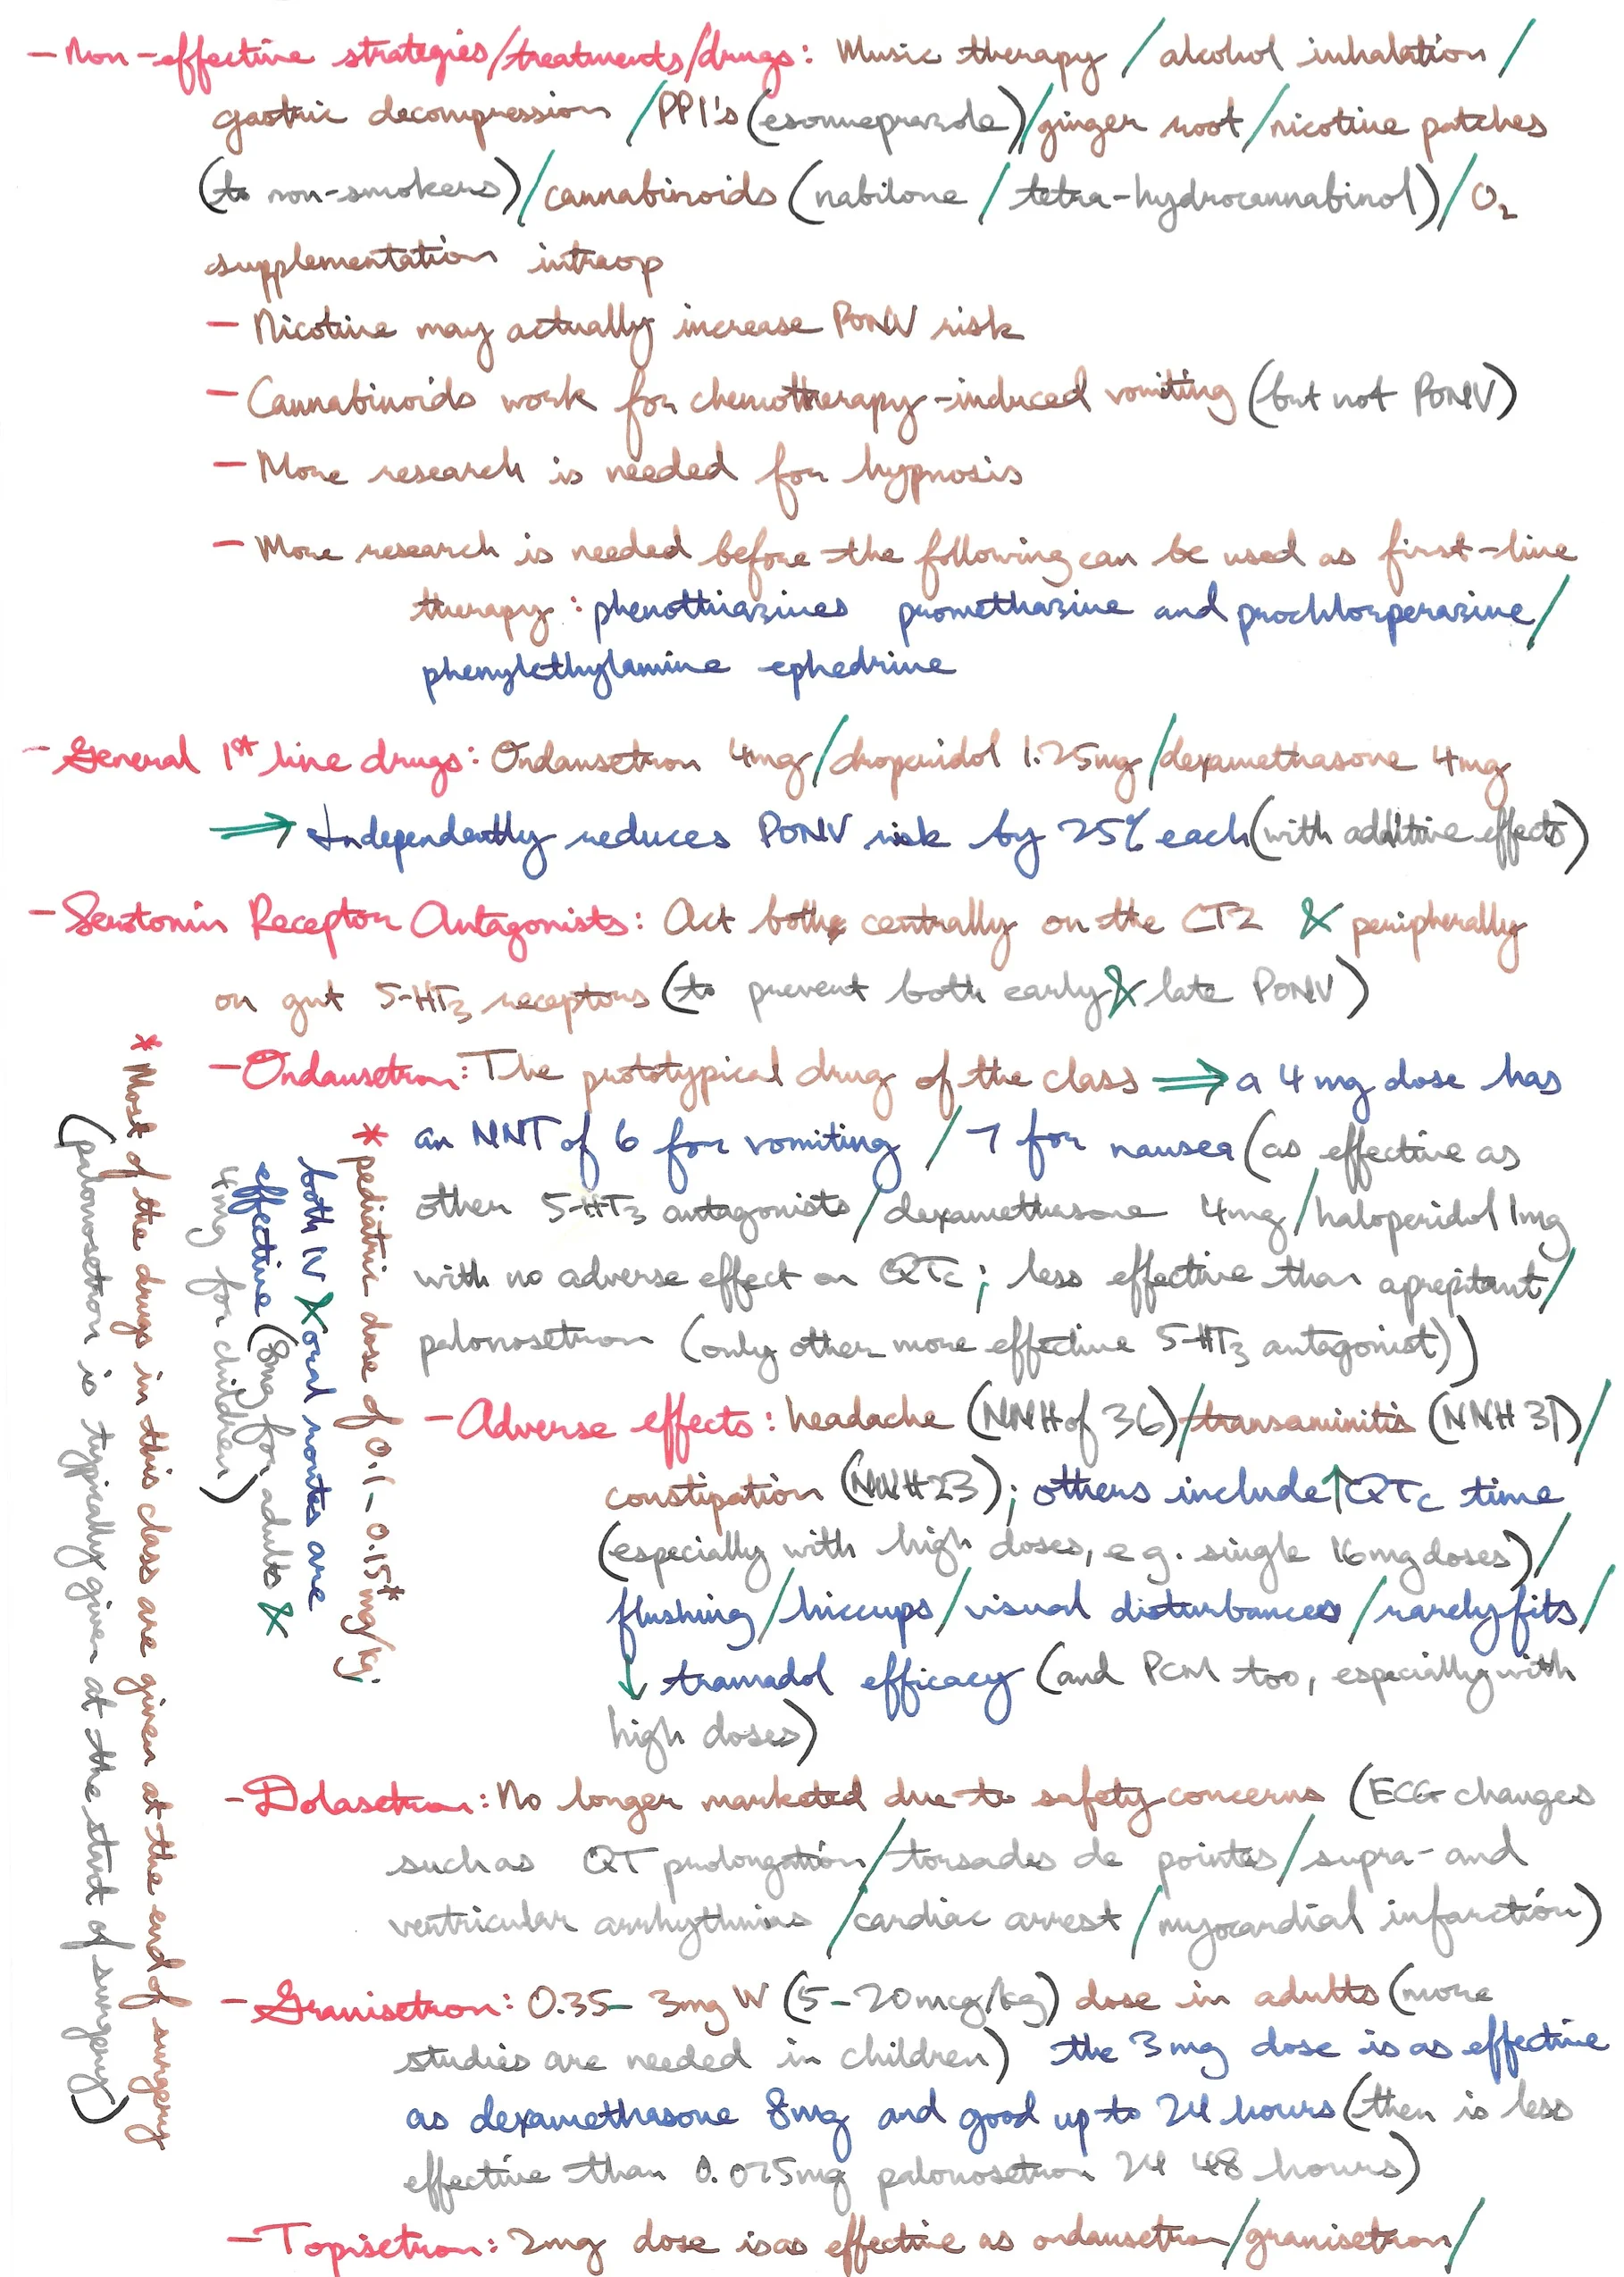 - Non-effective strategies/treatments/drugs: Music therapy / alcohol inhalation /
gastric decompression / PPI's (esomeprazole) / ginger root / nicotine patches
(to non-smokers) / cannabinoids (nabilone / tetra-hydrocannabinol) / O₂
supplementation intraop
- Nicotine may actually increase PONV risk
- Cannabinoids work for chemotherapy-induced vomiting (but not PONV)
- More research is needed for hypnosis
- More research is needed before the following can be used as first-line
therapy: phenothiazines promethazine and prochlorperazine /
phenylethylamine ephedrine
- General 1st line drugs: Ondansetron 4mg / droperidol 1.25mg / dexamethasone 4mg
⇒ Independently reduces PONV risk by 25% each (with additive effects)
- Serotonin Receptor Antagonists: Act both centrally on the CTZ & peripherally
on gut 5-HT₃ receptors (to prevent both early & late PONV)
- Ondansetron: The prototypical drug of the class ⇒ a 4mg dose has
an NNT of 6 for vomiting / 7 for nausea (as effective as
other 5-HT₃ antagonists / dexamethasone 4mg / haloperidol 1mg
with no adverse effect on QTc; less effective than aprepitant /
palonosetron (only other more effective 5-HT₃ antagonist))
- Adverse effects: headache (NNH of 36) / transaminitis (NNH 31) /
constipation (NNH 23); others include ↑QTc time
(especially with high doses, e.g. single 16mg doses) /
flushing / hiccups / visual disturbances / rarely fits /
↓ tramadol efficacy (and PCM too, especially with
high doses)
* pediatric dose of 0.1-0.15* mg/kg.
both IV & oral routes are
effective (8mg for adults &
4mg for children)
* Most of the drugs in this class are given at the end of surgery
(palonosetron is typically given at the start of surgery)
- Dolasetron: No longer marketed due to safety concerns (ECG changes
such as QT prolongation / torsades de pointes / supra- and
ventricular arrhythmias / cardiac arrest / myocardial infarction)
- Granisetron: 0.35-3mg IV (5-20mcg/kg) dose in adults (more
studies are needed in children) the 3mg dose is as effective
as dexamethasone 8mg and good up to 24 hours (then is less
effective than 0.075mg palonosetron 24 48 hours)
- Topisetron: 2mg dose is as effective as ondansetron / granisetron /